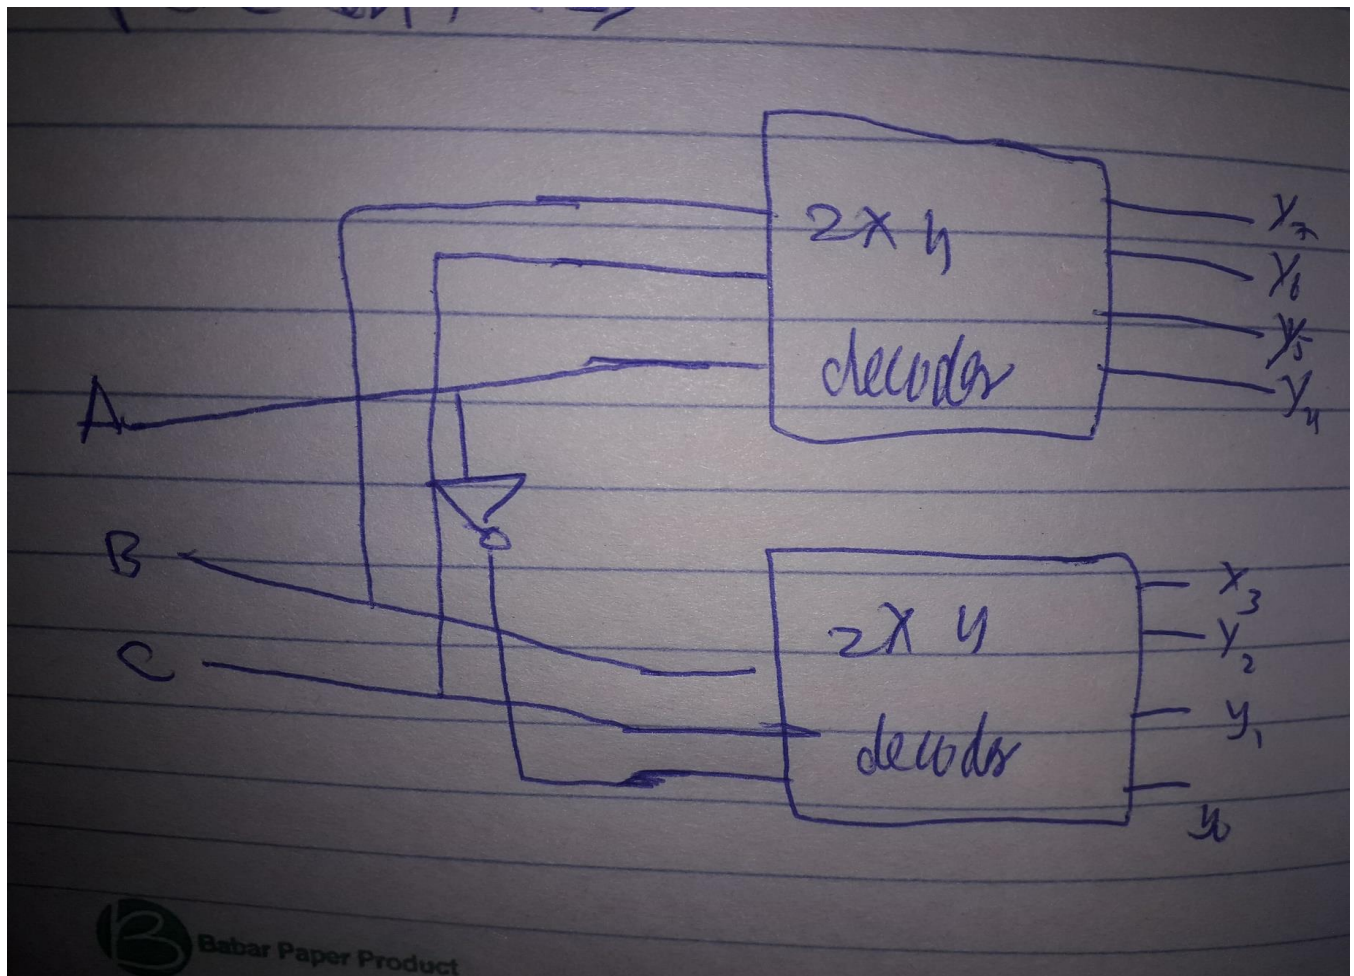 2 X 4
decoder
Y7
Y6
Y5
Y4
A
B
C
2 X 4
decoder
X3
Y2
y1
y0
B
Babar Paper Product